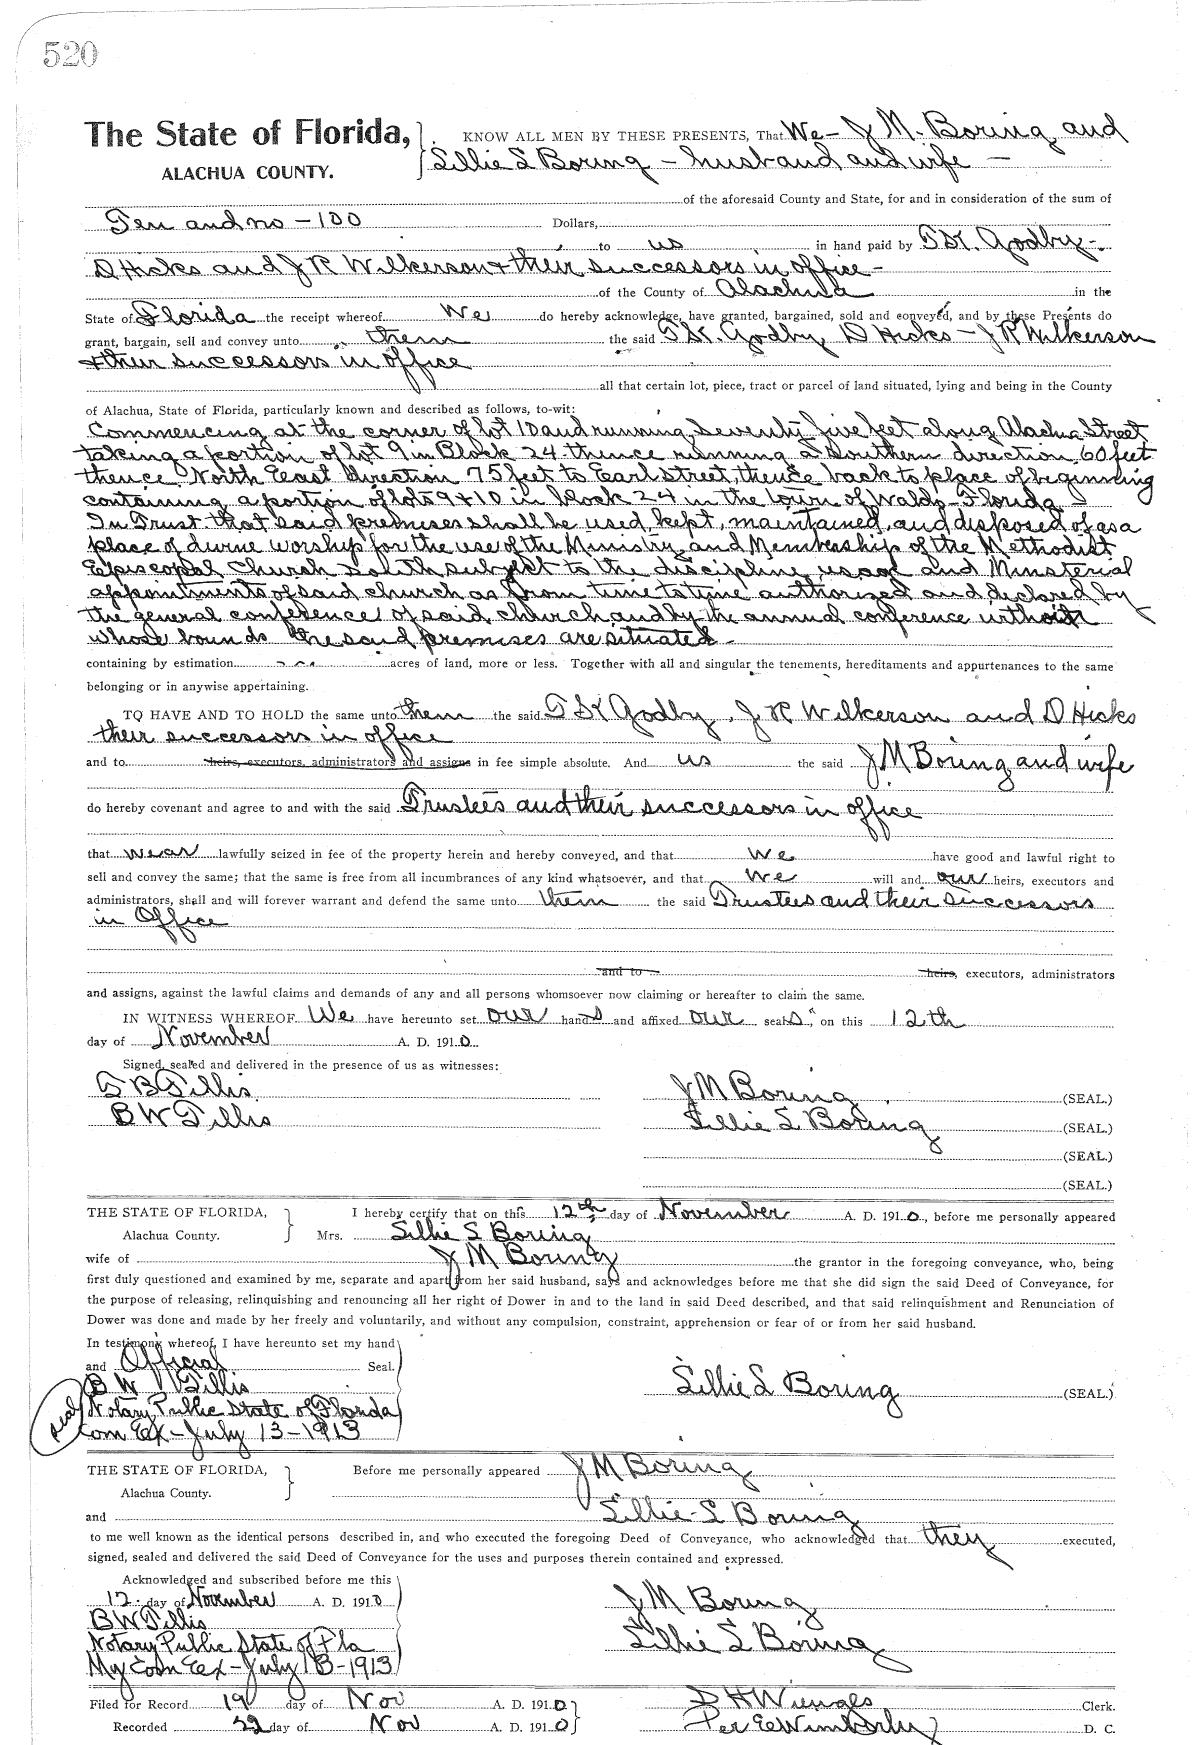 520
The State of Florida, KNOW ALL MEN BY THESE PRESENTS, That We - J M. Boring and
ALACHUA COUNTY. Lillie S Boring - husband and wife -
of the aforesaid County and State, for and in consideration of the sum of
Ten and no - 100 Dollars,
to us in hand paid by Godby -
D Hicks and J R Wilkerson + their successors in office -
of the County of Alachua in the
State of Florida the receipt whereof We do hereby acknowledge, have granted, bargained, sold and conveyed, and by these Presents do
grant, bargain, sell and convey unto them the said Godby D Hicks - J R Wilkerson
+ their successors in office
all that certain lot, piece, tract or parcel of land situated, lying and being in the County
of Alachua, State of Florida, particularly known and described as follows, to-wit:
Commencing at the corner of lot 10 and running Seventy five feet along Alachua Street
taking a portion of lot 9 in Block 24 thence running a Southern direction 60 feet
thence North East direction 75 feet to Earl Street, thence back to place of beginning
containing a portion of lots 9 + 10 in block 24 in the town of Waldo Florida
In Trust that said premises shall be used, kept, maintained, and disposed of as a
place of divine worship for the use of the Ministry and Membership of the Methodist
Episcopal Church South subject to the discipline, and Ministerial
appointments of said church as from time to time authorized and declared by
the general conference of said church, and by the annual conference
whose bounds the said premises are situated -
containing by estimation acres of land, more or less. Together with all and singular the tenements, hereditaments and appurtenances to the same
belonging or in anywise appertaining.
TO HAVE AND TO HOLD the same unto them the said Godby, J R Wilkerson and D Hicks
their successors in office
and to heirs, executors, administrators and assigns in fee simple absolute. And us the said J M Boring and wife
do hereby covenant and agree to and with the said Trustees and their successors in office
that we ar lawfully seized in fee of the property herein and hereby conveyed, and that we have good and lawful right to
sell and convey the same; that the same is free from all incumbrances of any kind whatsoever, and that we will and our heirs, executors and
administrators, shall and will forever warrant and defend the same unto them the said Trustees and their successors
in Office
and to heirs, executors, administrators
and assigns, against the lawful claims and demands of any and all persons whomsoever now claiming or hereafter to claim the same.
IN WITNESS WHEREOF We have hereunto set our hands and affixed our seals, on this 12th
day of November A. D. 1910.
Signed, sealed and delivered in the presence of us as witnesses:
T B Tillis J M Boring (SEAL.)
B W Tillis Lillie S Boring (SEAL.)
(SEAL.)
(SEAL.)
THE STATE OF FLORIDA, I hereby certify that on this 12th day of November A. D. 1910, before me personally appeared
Alachua County. Mrs. Lillie S Boring
wife of J M Boring the grantor in the foregoing conveyance, who, being
first duly questioned and examined by me, separate and apart from her said husband, says and acknowledges before me that she did sign the said Deed of Conveyance, for
the purpose of releasing, relinquishing and renouncing all her right of Dower in and to the land in said Deed described, and that said relinquishment and Renunciation of
Dower was done and made by her freely and voluntarily, and without any compulsion, constraint, apprehension or fear of or from her said husband.
In testimony whereof, I have hereunto set my hand
and Official Seal.
B W Tillis Lillie S Boring (SEAL.)
seal Notary Public State of Florida
Com Ex - July 13 - 1913
THE STATE OF FLORIDA, Before me personally appeared J M Boring
Alachua County.
and Lillie S Boring
to me well known as the identical persons described in, and who executed the foregoing Deed of Conveyance, who acknowledged that they executed,
signed, sealed and delivered the said Deed of Conveyance for the uses and purposes therein contained and expressed.
Acknowledged and subscribed before me this
12 day of November A. D. 1910 J M Boring
B W Tillis Lillie S Boring
Notary Public State of Fla
My Com Ex - July 13 - 1913
Filed for Record 19 day of Nov A. D. 1910 Clerk.
Recorded 22 day of Nov A. D. 1910 Per Wimberly D. C.